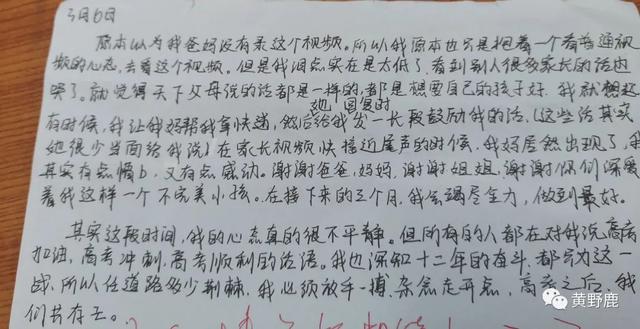 3月6日
原本以为我爸妈没有录这个视频。所以我原本也只是抱着一个看普通视
频的心态,去看这个视频。但是我泪点实在是太低了,看到别人很多家长的话内
哭了。就觉得天下父母说的话都是一样的,都是想要自己的孩子好。我就想起
有时候,我让我妈帮我拿快递,然后她回复时给我发一长段鼓励我的话,(这些话其实
她很少当面给我说)在家长视频快接近尾声的时候,我妈居然出现了,我
其实有点懵b,又有点感动。谢谢爸爸,妈妈,谢谢姐姐,谢谢你们深爱
着我这样一个不完美小孩。在接下来的三个月,我会竭尽全力,做到最好。
其实这段时间,我的心态真的很不平静。但所有的人都在对我说高考
加油,高考冲刺,高考顺利的话语。我也深知十二年的奋斗,都只为这一
战,所以任道路多少荆棘,我必须放手一搏,杂念走开点,高考之后,我
们共存亡。
黄野鹿